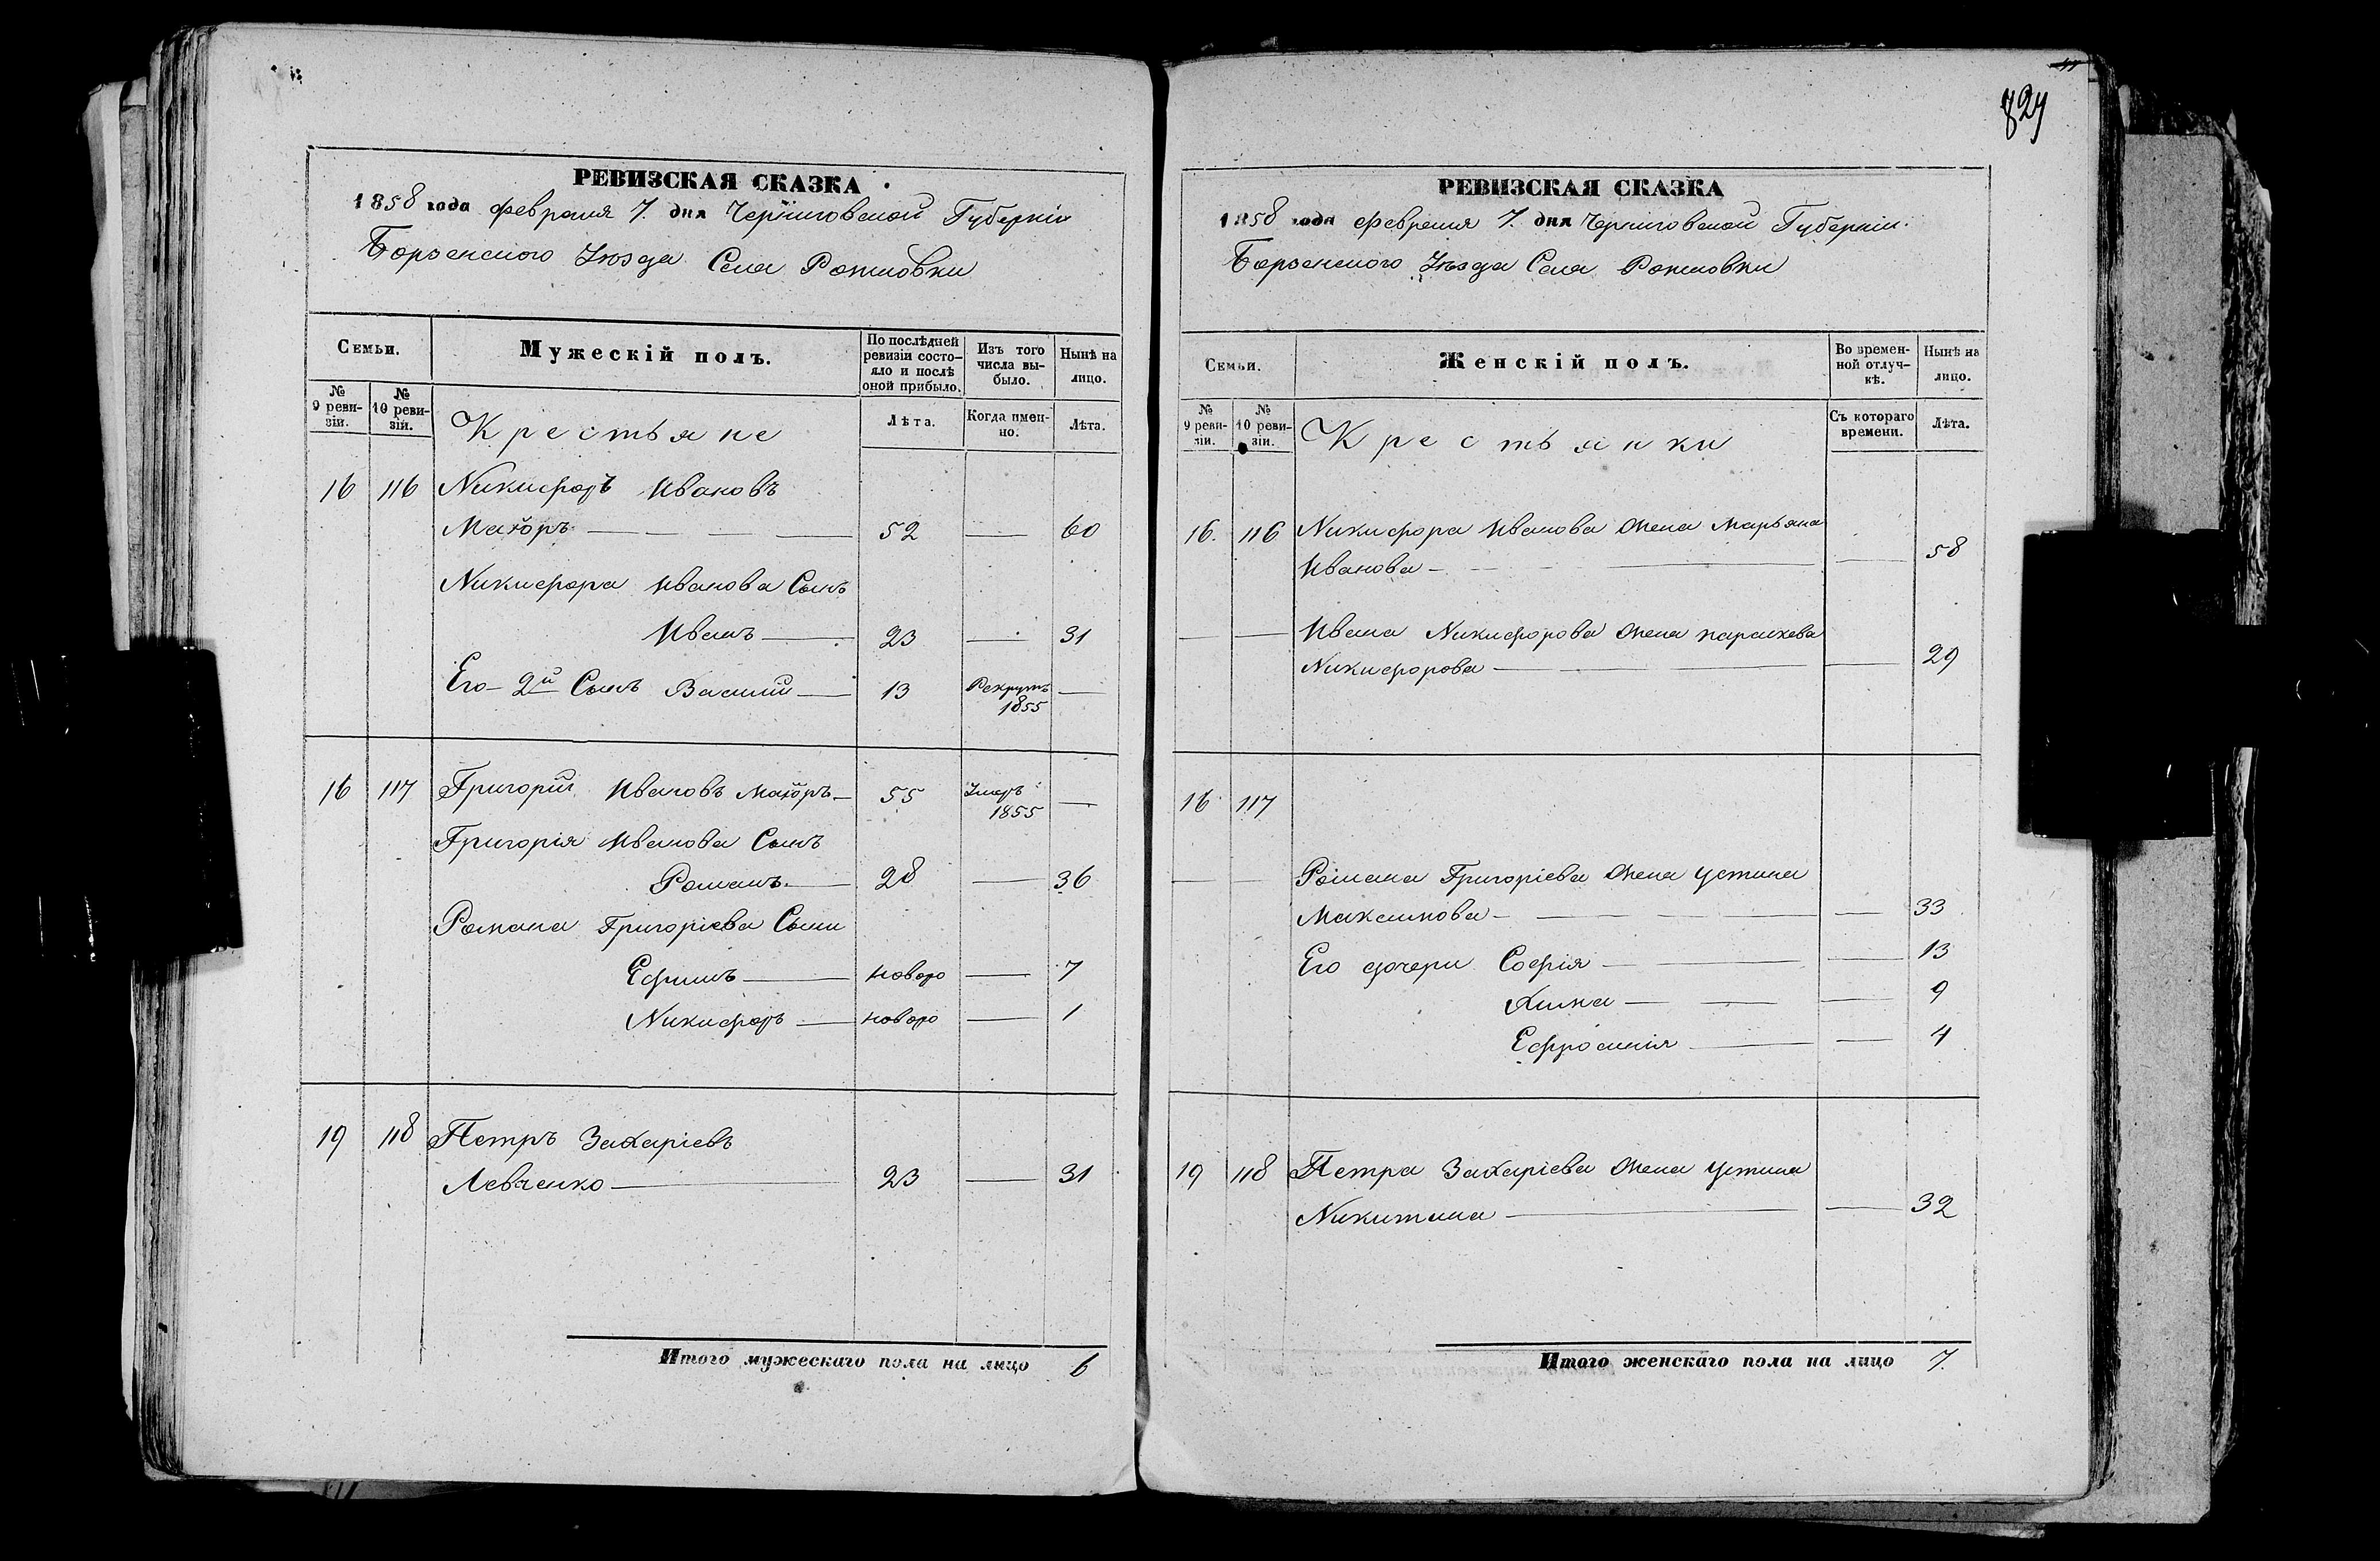 829
РЕВИЗСКАЯ СКАЗКА
1858 года февраля 7. дня Черниговской Губернiи
Борзенского Уѣзда Села Рожновки
Семьи.
Мужескiй полъ.
По послѣдней ревизiи состо-
яло и послѣ оной прибыло.
Изъ того числа вы-
было.
Нынѣ на лицо.
№ 9 реви-
зiи.
№ 10 реви-
зiи.
Крестьяне
Лѣта.
Когда имен-
но.
Лѣта.
16 116 Никифоръ Ивановъ
Маіоръ — 52 — 60
Никифора Иванова Сынъ
Иванъ — 23 — 31
Его 2й Сынъ Василий — 13 Рекрутъ 1855 —
16 117 Григорий Ивановъ Маіоръ — 55 Умеръ 1855 —
Григорія Иванова Сынъ
Романъ — 28 — 36
Романа Григоріева Сыны
Ефимъ — новоро — 7
Никифоръ — новоро — 1
19 118 Петръ Захаріевъ
Левченко — 23 — 31
Итого мужескаго пола на лицо 6
РЕВИЗСКАЯ СКАЗКА
1858 года февраля 7. дня Черниговской Губернiи.
Борзенского Уѣзда Села Рожновки
Семьи.
Женскiй полъ.
Во времен-
ной отлуч-
кѣ.
Нынѣ на лицо.
№ 9 реви-
зiи.
№ 10 реви-
зiи.
Крестьянки
Съ котораго времени.
Лѣта.
16. 116 Никифора Иванова Жена Марьяна
Иванова — — 58
— — Ивана Никифорова Жена параскева
Никифорова — — 29
16 117
— — Романа Григоріева Жена Устина
Максимова — — 33
Его дочери Софія — — 13
Химка — — 9
Ефросинія — — 4
19 118 Петра Захаріева Жена Устина
Никитина — — 32
Итого женскаго пола на лицо 7.